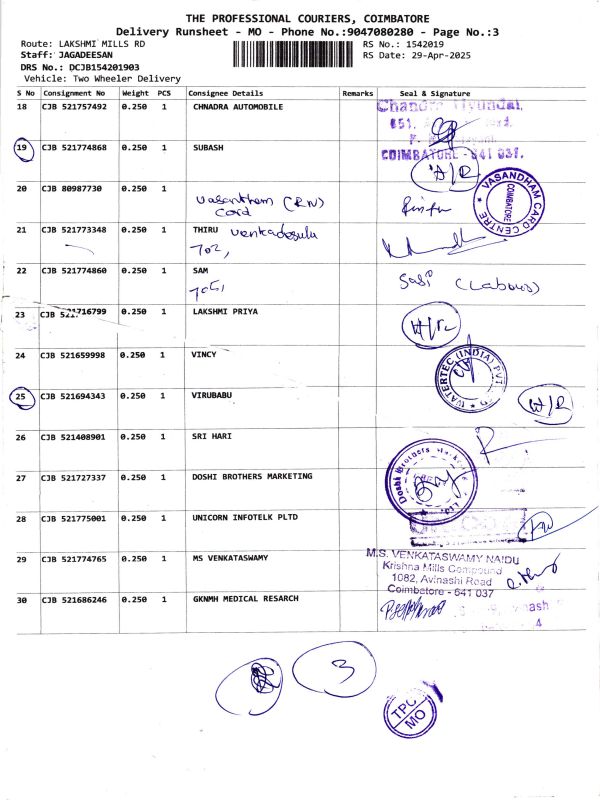 THE PROFESSIONAL COURIERS, COIMBATORE
Delivery Runsheet - MO - Phone No.:9047080280 - Page No.:3
Route: LAKSHMI MILLS RD
RS No.: 1542019
Staff: JAGADEESAN
RS Date: 29-Apr-2025
DRS No.: DCJB154201903
Vehicle: Two Wheeler Delivery
S No Consignment No Weight PCS Consignee Details Remarks Seal & Signature
18 CJB 521757492 0.250 1 CHNADRA AUTOMOBILE
Chandra Hyundai,
651,
COIMBATORE - 641 037.
19 CJB 521774868 0.250 1 SUBASH
A/R
20 CJB 80987730 0.250 1
Vasantham (RN)
Card
VASANDHAM CARD CENTRE
COIMBATORE
21 CJB 521773348 0.250 1 THIRU Venkadesulu
702,
22 CJB 521774860 0.250 1 SAM
Sasi (Labour)
23 CJB 521716799 0.250 1 LAKSHMI PRIYA
24 CJB 521659998 0.250 1 VINCY
WATERTEC (INDIA) PVT
25 CJB 521694343 0.250 1 VIRUBABU
A/R
26 CJB 521408901 0.250 1 SRI HARI
27 CJB 521727337 0.250 1 DOSHI BROTHERS MARKETING
Doshi Brothers
28 CJB 521775001 0.250 1 UNICORN INFOTELK PLTD
29 CJB 521774765 0.250 1 MS VENKATASWAMY
M.S. VENKATASWAMY NAIDU
Krishna Mills Compound
1082, Avinashi Road
Coimbatore - 641 037
30 CJB 521686246 0.250 1 GKNMH MEDICAL RESARCH
3
TPC
MO